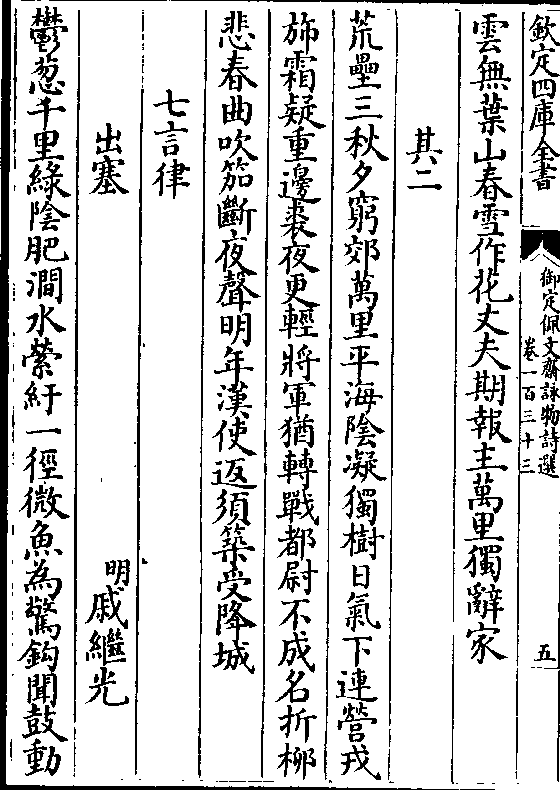 欽定四庫全書
御定佩文齋詠物詩選
卷一百三十三
五
雲無葉山春雪作花丈夫期報主萬里獨辭家
其二
荒壘三秋夕窮郊萬里平海陰凝獨樹日氣下連營戎
旆霜疑重邊裘夜更輕將軍猶轉戰都尉不成名折柳
悲春曲吹笳斷夜聲明年漢使返須築受降城
七言律
出塞
明戚繼光
鬱葱千里綠陰肥澗水縈紆一徑微魚為驚鈎聞鼓動